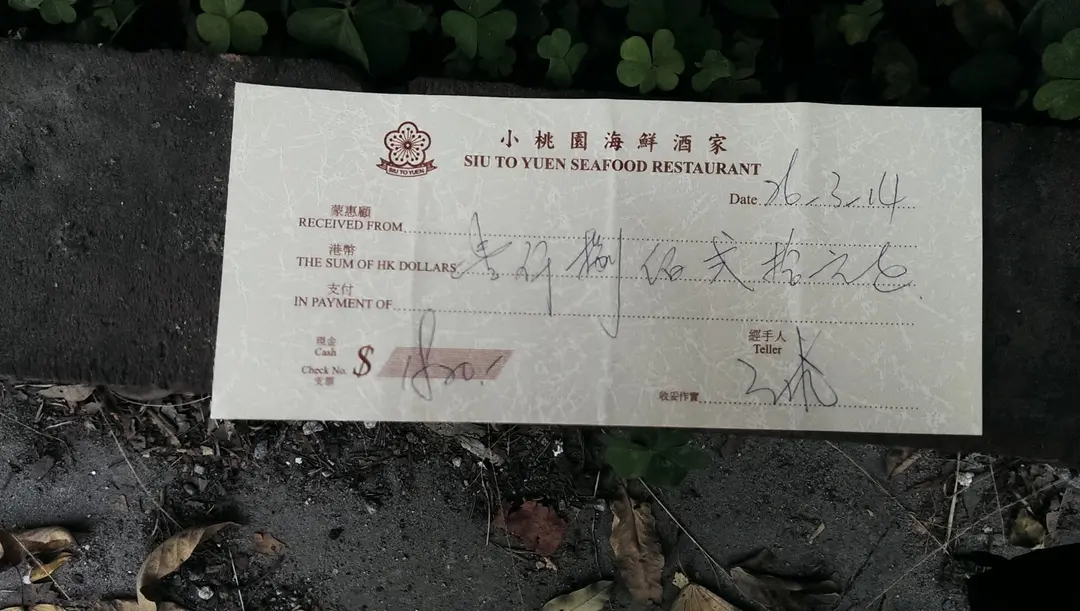 小桃園海鮮酒家
SIU TO YUEN
SIU TO YUEN SEAFOOD RESTAURANT
Date 26-3-14
蒙惠顧
RECEIVED FROM
港幣
THE SUM OF HK DOLLARS 壹仟捌佰弍拾元正
支付
IN PAYMENT OF
現金
Cash
$ 1820.-
Check No.
支票
經手人
Teller
收妥作實